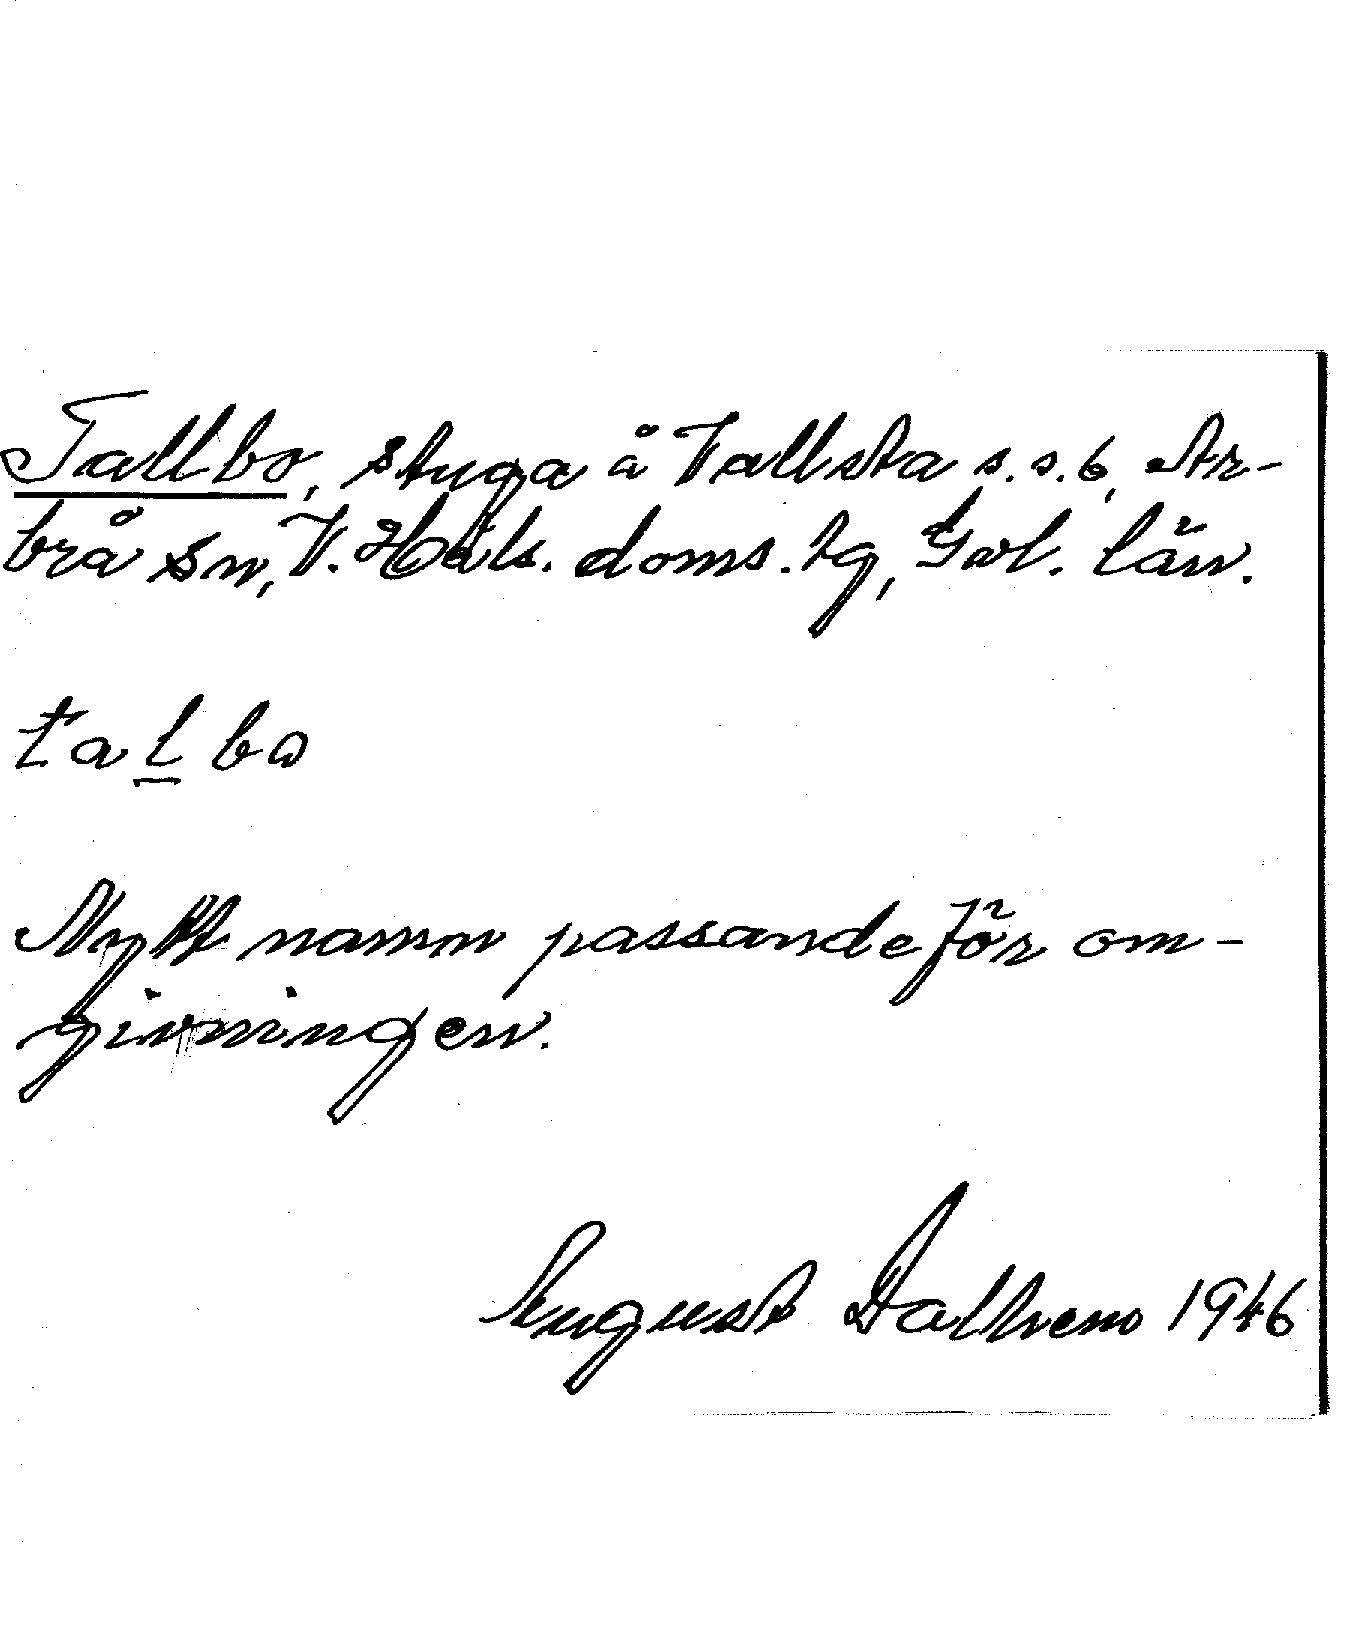 Tallbo, stuga å Vallsta s.s.6, Ar-
brå sn, V. Häls. doms. tg, Gvl. län.
talbo
Nytt namn passande för om-
givningen.
August Dalhem 1946